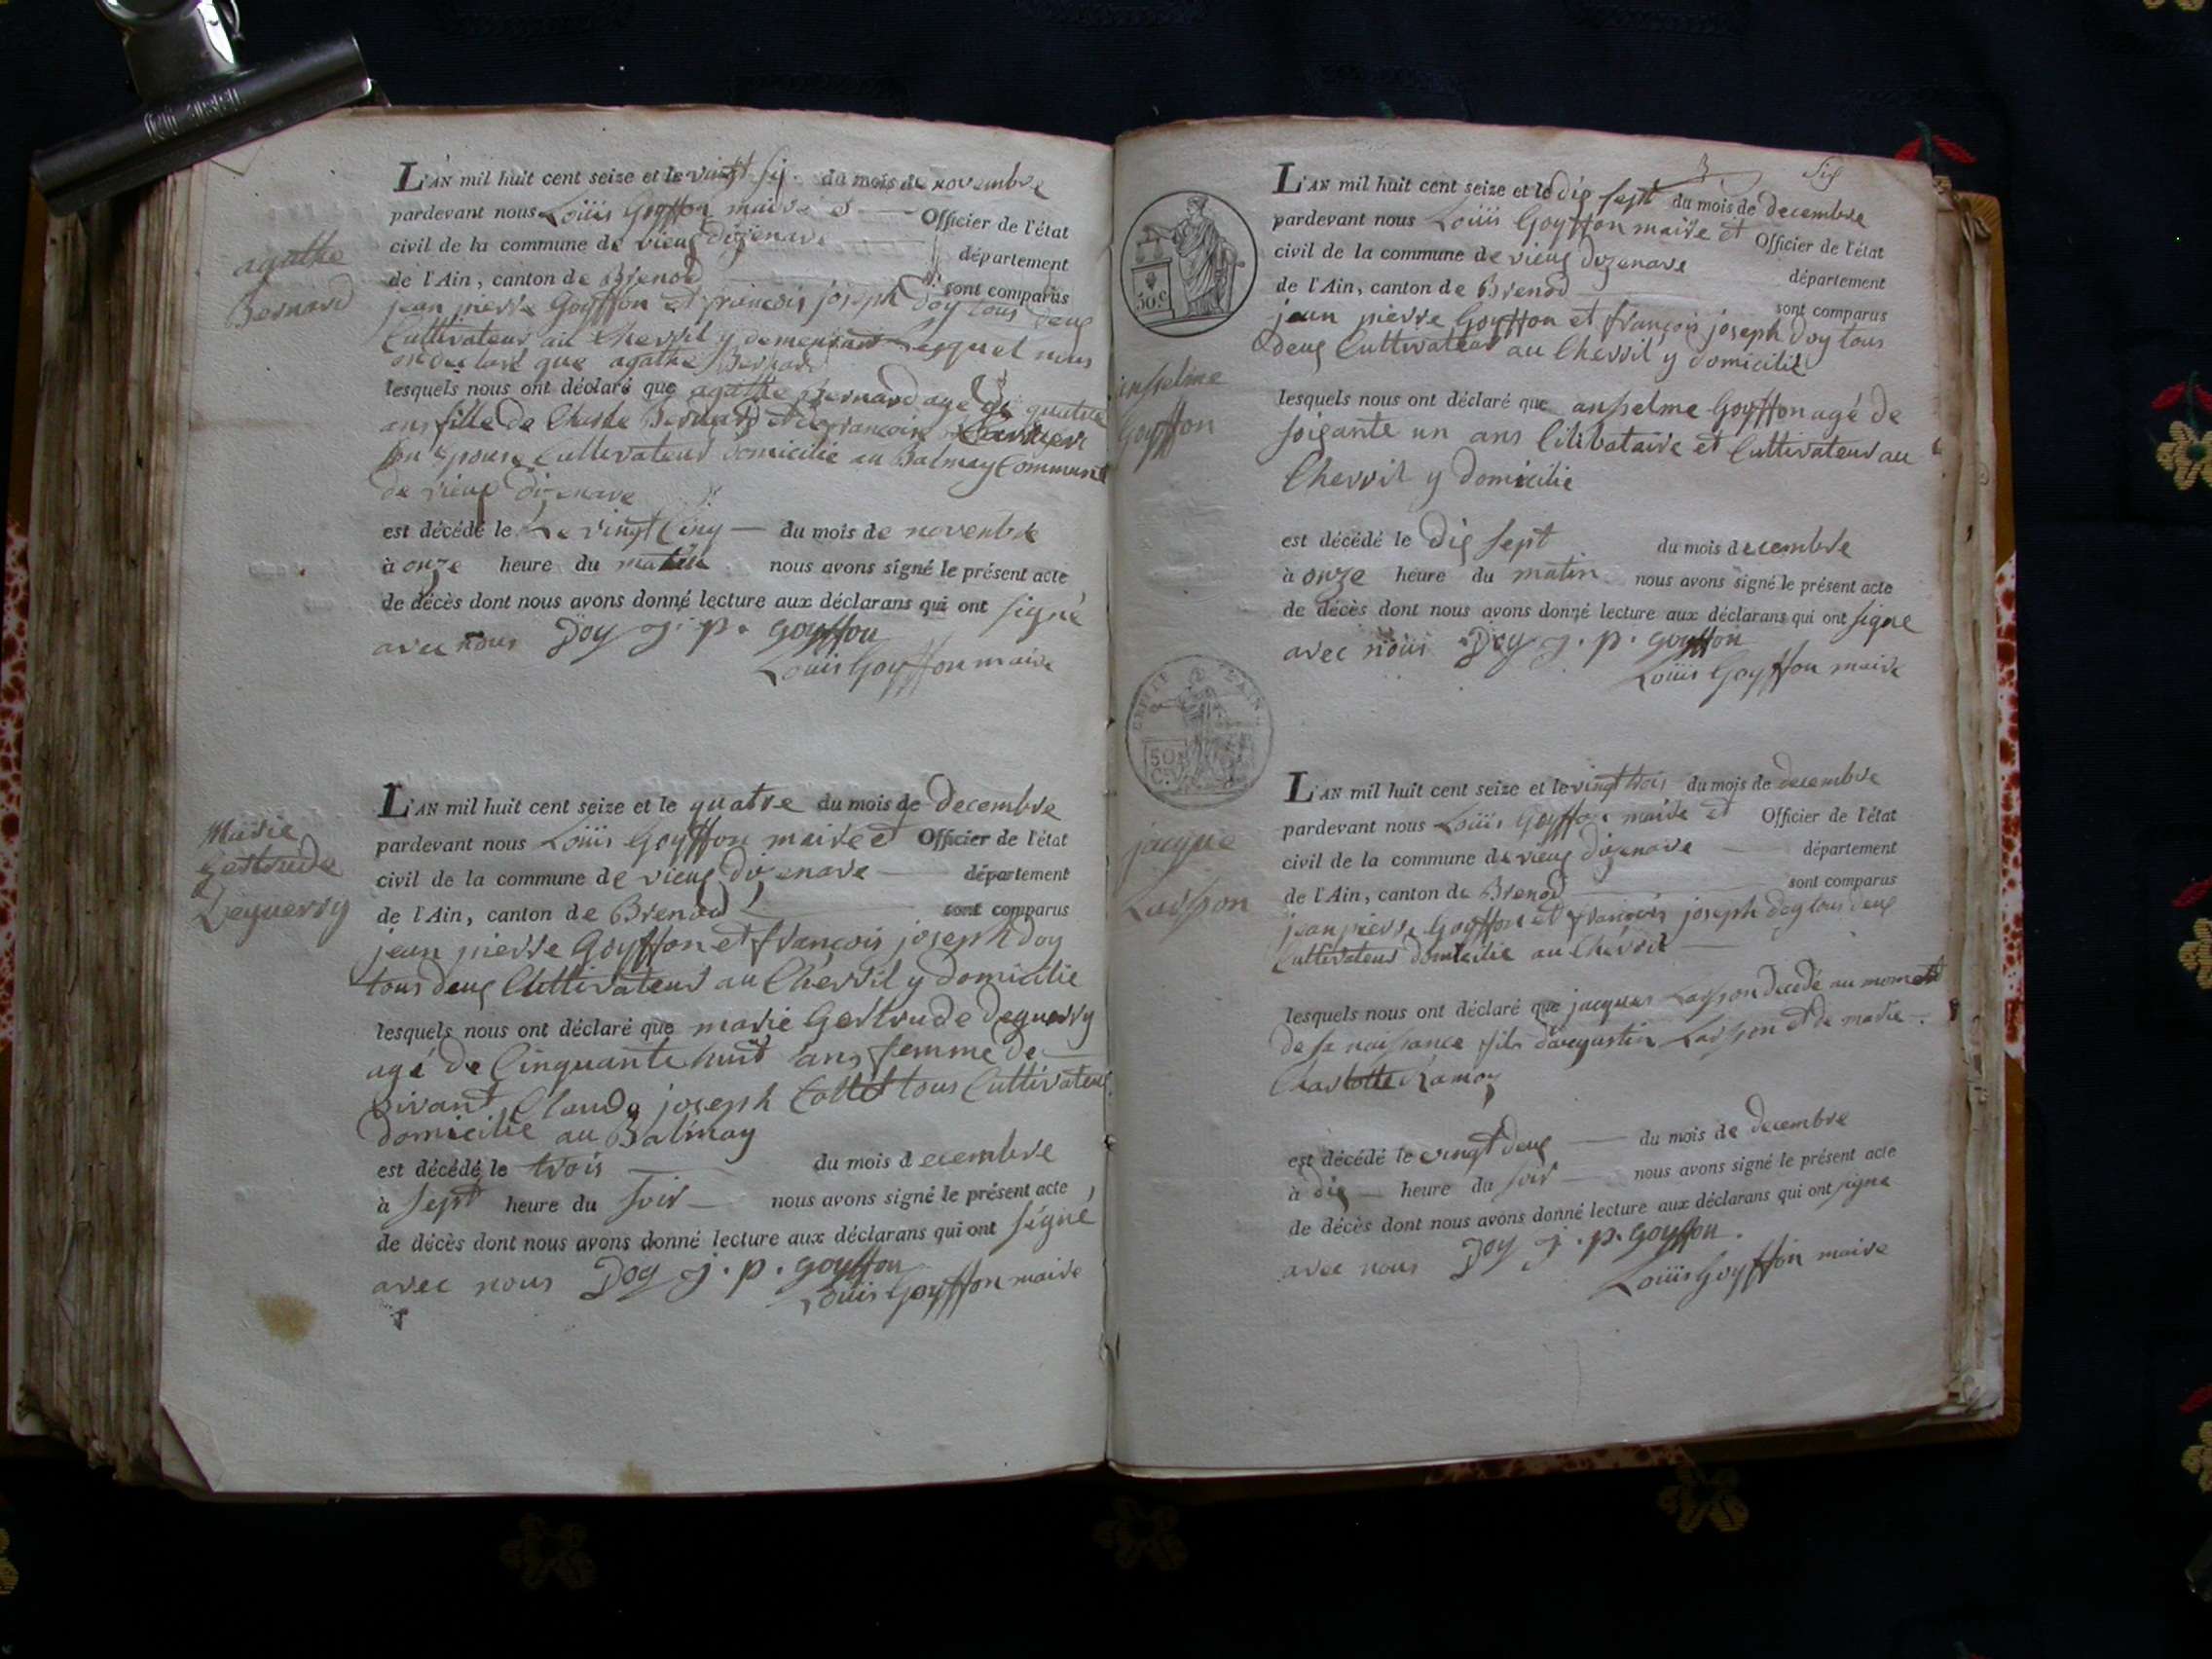 agathe
Bernard
L'AN mil huit cent seize et le vingt six du mois de novembre
pardevant nous Loüis Goyffon maire et Officier de l'état
civil de la commune de vieux dizenave département
de l'Ain, canton de Brenod sont comparus
jean pierre Goyffon et francois joseph Doy tous deux
Cultivateur au Chevril y demeurant lesquel nous
on declaré que agathe Bernard
lesquels nous ont déclaré que agathe Bernard age de quatre
ans fille de Charle Bernard et de francoise
son epouse Cultivateur domicilie au Balmay Commune
de vieux dizenave
est décédé le Le vingt Cinq du mois de novembre
à onze heure du matin nous avons signé le présent acte
de décès dont nous avons donné lecture aux déclarans qui ont signé
avec nous Doy j. p. goyffon
Louis Goyffon maire
Marie
Gertrude
Deguerry
L'AN mil huit cent seize et le quatre du mois de decembre
pardevant nous Loüis Goyffon maire et Officier de l'état
civil de la commune de vieux dizenave département
de l'Ain, canton de Brenod sont comparus
jean pierre Goyffon et françois joseph doy
tous deux Cultivateur au Chevril y domicilie
lesquels nous ont déclaré que marie Gertrude deguerry
agé de Cinquante huit ans femme de
vivant Claude joseph Collet tous Cultivateur
domicilie au Balmay
est décédé le trois du mois decembre
à sept heure du soir nous avons signé le présent acte
de décès dont nous avons donné lecture aux déclarans qui ont signé
avec nous Doy j. p. goyffon
Loüis Goyffon maire
six
50.c
anselme
Goyffon
L'AN mil huit cent seize et le dix sept du mois de decembre
pardevant nous Loüis Goyffon maire et Officier de l'état
civil de la commune de vieux dizenave département
de l'Ain, canton de Brenod sont comparus
jean pierre Goyffon et françois joseph doy tous
deux Cultivateur au Chevril y domicilié
lesquels nous ont déclaré que anselme Goyffon agé de
soixante un ans Célibataire et Cultivateur au
Chevril y domicilie
est décédé le dix sept du mois decembre
à onze heure du matin nous avons signé le présent acte
de décès dont nous avons donné lecture aux déclarans qui ont signé
avec nous Doy j. p. goyffon
Loüis Goyffon maire
50
C.
jacque
Laisson
L'AN mil huit cent seize et le vingt trois du mois de decembre
pardevant nous Loüis Goyffon maire et Officier de l'état
civil de la commune de vieux dizenave département
de l'Ain, canton de Brenod sont comparus
jean pierre Goyffon et françois joseph doy tous deux
Cultivateur domicilie au Chevril
lesquels nous ont déclaré que jacques Laisson decedé au moment
de sa naissance fils d'augustin Laisson et de marie
Charlotte Ramoz
est décédé le vingt deux du mois de decembre
à dix heure du soir nous avons signé le présent acte
de décès dont nous avons donné lecture aux déclarans qui ont signé
avec nous Doy j. p. goyffon.
Loüis Goyffon maire